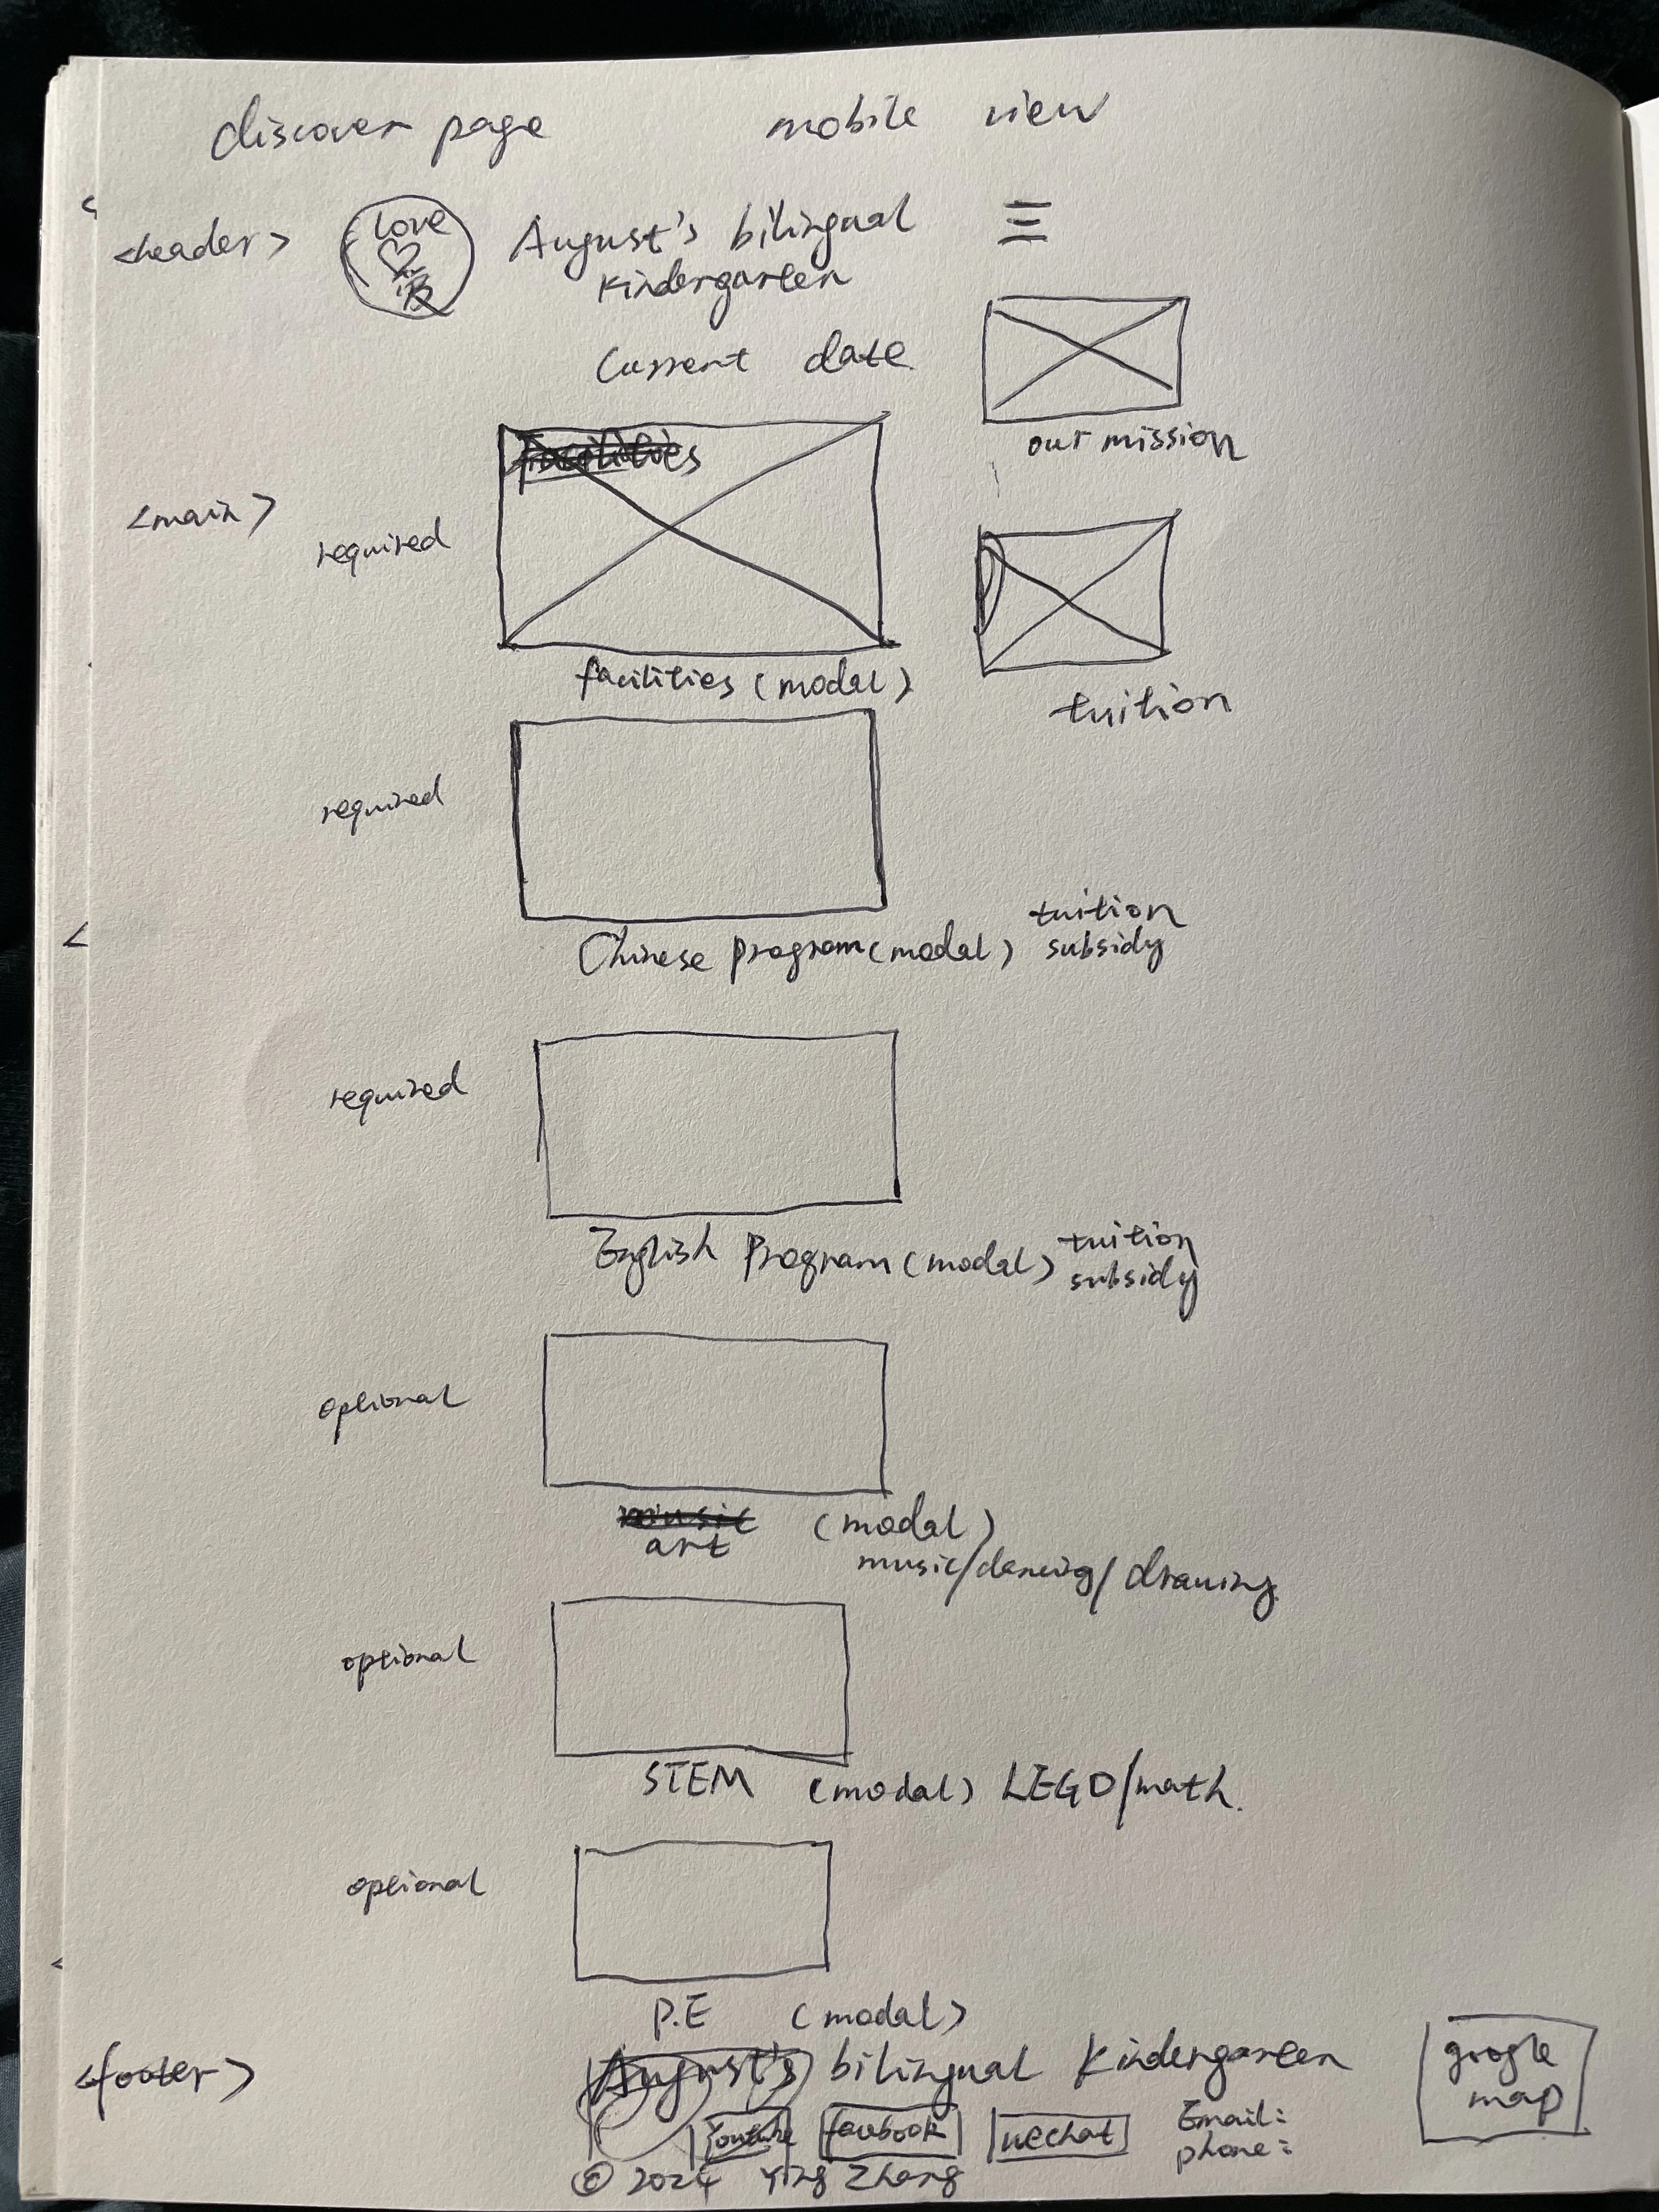 discover page mobile view
<header>
love
爱
August's bilingual
Kindergarten
Current date
our mission
facilities
<main>
required
facilities (modal)
tuition
required
Chinese program (modal)
tuition
subsidy
required
English Program (modal)
tuition
subsidy
optional
music
art
(modal)
music/dancing/drawing
optional
STEM (modal) LEGO/math.
optional
P.E (modal)
<footer>
August's bilingual Kindergarten
google
map
Youtube
facebook
wechat
Email:
phone:
© 2024 Ying Zhang